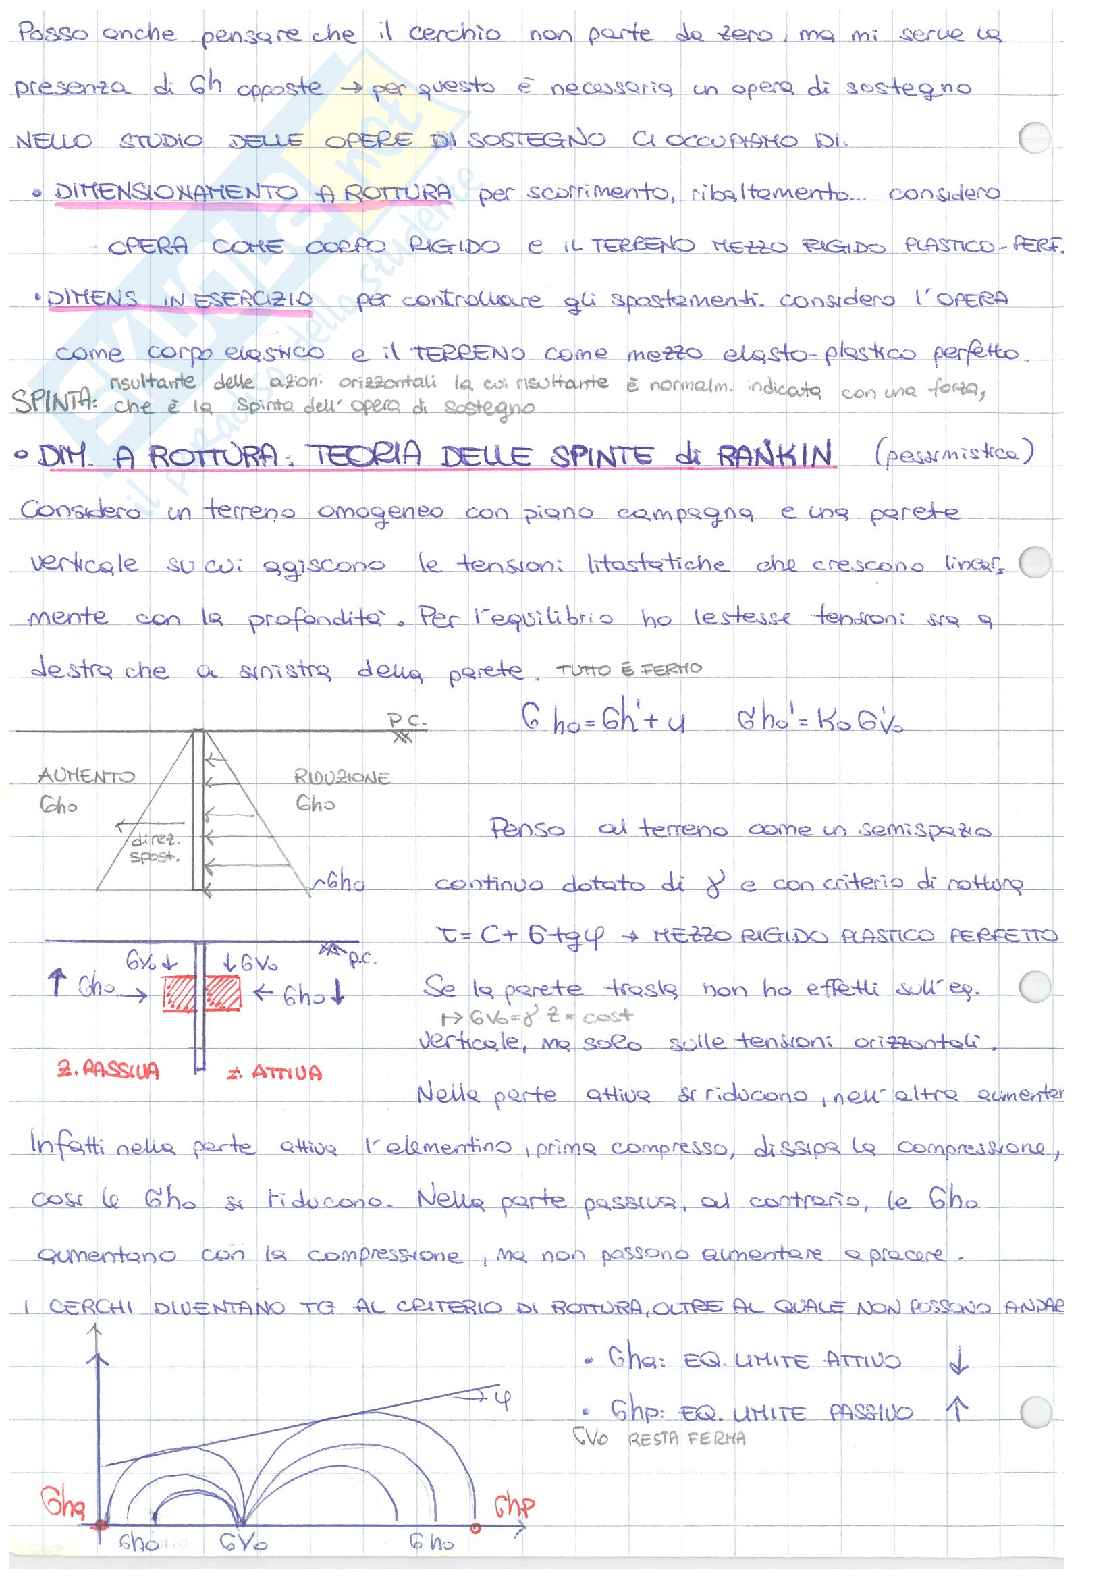 Posso anche pensare che il cerchio non parte da zero, ma mi serve la
presenza di σh opposte → per questo è necessaria un opera di sostegno
NELLO STUDIO DELLE OPERE DI SOSTEGNO CI OCCUPIAMO DI.
• DIMENSIONAMENTO A ROTTURA per scorrimento, ribaltamento... considero
OPERA COME CORPO RIGIDO e IL TERRENO MEZZO RIGIDO PLASTICO-PERF.
• DIMENS IN ESERCIZIO per controllare gli spostamenti. considero l'OPERA
come corpo elastico e il TERRENO come mezzo elasto-plastico perfetto.
SPINTA: risultante delle azioni orizzontali la cui risultante è normalm. indicata con una forza,
che è la Spinta dell'opera di sostegno
• DIM. A ROTTURA: TEORIA DELLE SPINTE di RANKIN (pessimistica)
Considero un terreno omogeneo con piano campagna e una parete
verticale su cui agiscono le tensioni litostatiche che crescono linear,
mente con la profondità. Per l'equilibrio ho le stesse tensioni sia a
destra che a sinistra della parete. TUTTO È FERMO
σho = σh' + u σho' = K₀ σ'vo
P.C.
AUMENTO
σho
RIDUZIONE
σho
direz.
spost.
~σho
Penso al terreno come un semispazio
continuo dotato di γ e con criterio di rottura
τ = C + σ tg φ → MEZZO RIGIDO PLASTICO PERFETTO
P.C.
σvo ↓ ↓ σvo
↑ σho → ← σho ↓
Z. PASSIVA Z. ATTIVA
Se la parete trasla non ho effetti sull'eq.
↦ σvo = γ z = cost
verticale, ma solo sulle tensioni orizzontali.
Nella parte attiva si riducono, nell'altra aumentan
Infatti nella parte attiva l'elementino, prima compresso, dissipa la compressione,
così le σho si riducono. Nella parte passiva, al contrario, le σho
aumentano con la compressione, ma non possono aumentare a piacere.
I CERCHI DIVENTANO TG AL CRITERIO DI ROTTURA, OLTRE AL QUALE NON POSSONO ANDAR
• σha: EQ. LIMITE ATTIVO ↓
• σhp: EQ. LIMITE PASSIVO ↑
σvo RESTA FERMA
φ
σha
σhp
σho σvo σho
SKUOLA.net
il paradiso dello studente